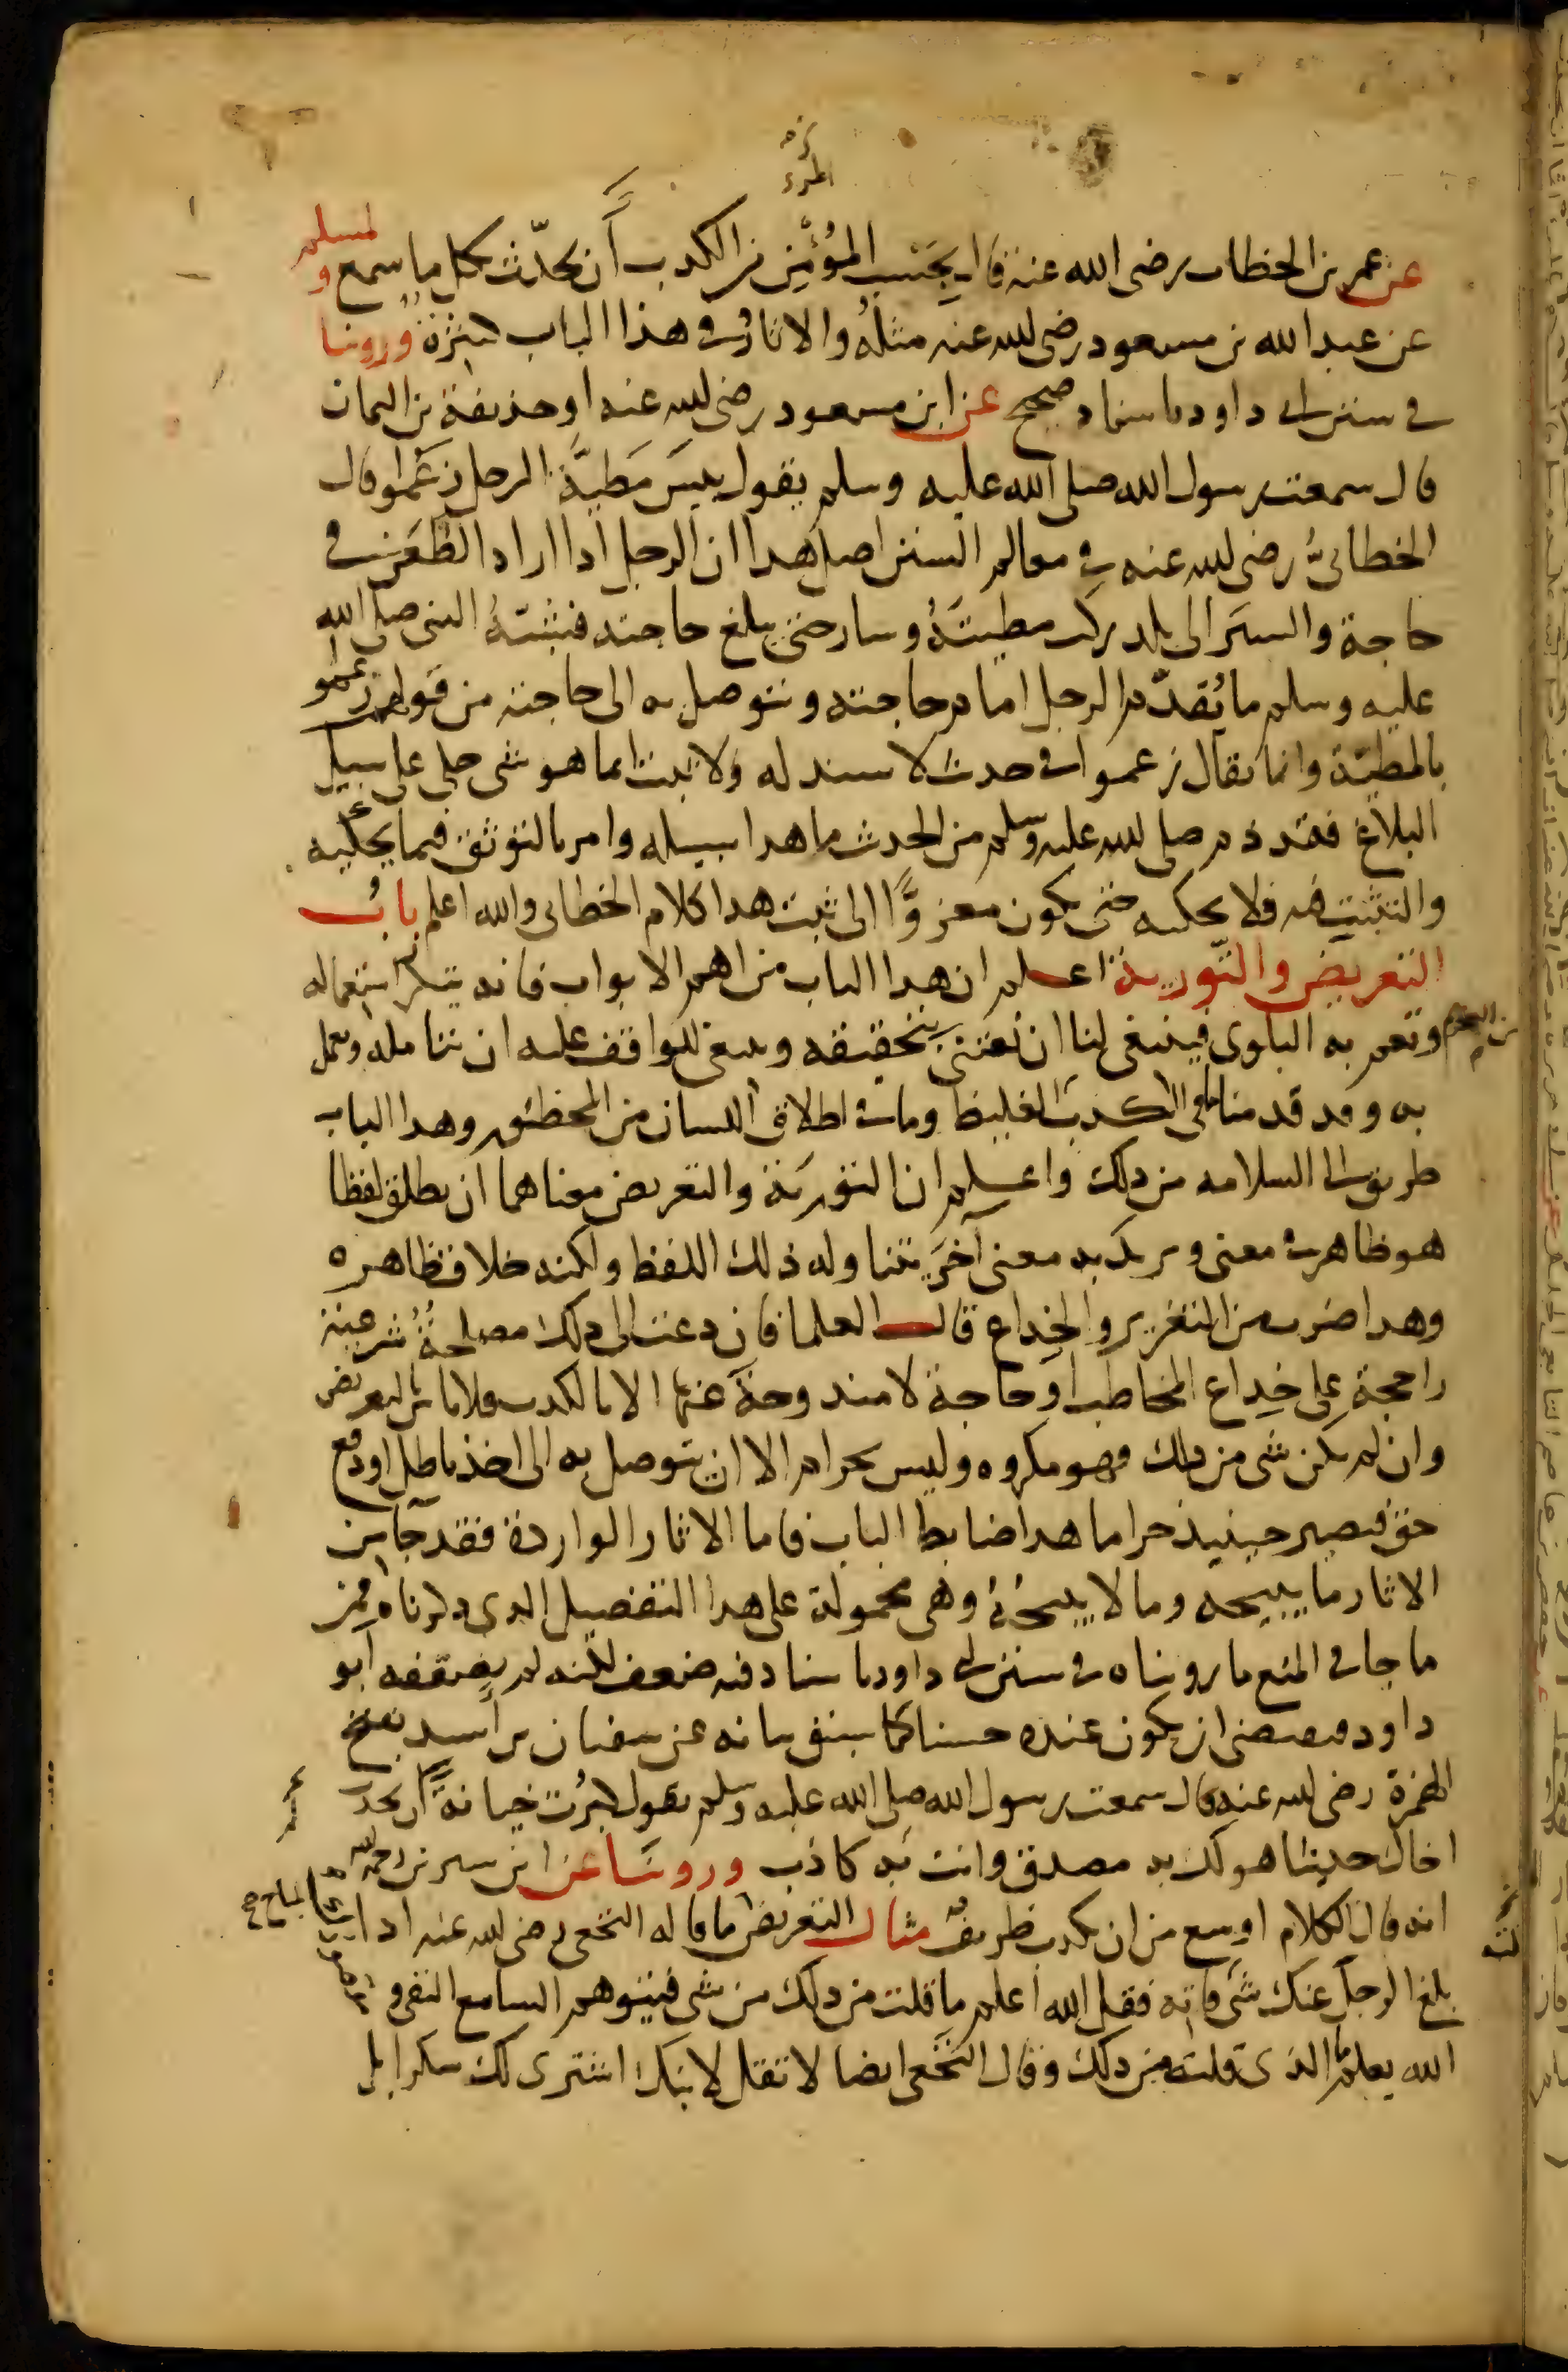 المرء
لمسلم
عن عمر بن الخطاب رضى الله عنه قال بحسب المؤمن من الكذب أن يحدّث بكل ما سمع و
عن عبد الله بن مسعود رضى الله عنه مثلهُ والاثار فى هذا الباب كثيرة وروينا
فى سنن ابى داود باسناد صحيح عن ابن مسعود رضى الله عنه او حذيفة بن اليمان
قال سمعت رسول الله صلى الله عليه وسلم يقول بيسَ مَطيَّة الرجل زعَموا قال
الخطابىُّ رضى الله عنه فى معالم السنن اصل هذا ان الرجل اذا اراد الظعَن فى
حاجة والسيَر الى بلد ركب مطيتَهُ وسار حتى يبلغ حاجته فشبّهُ النبى صلى الله
عليه وسلم ما يُقدّم الرجل امام حاجته ويتوصل به الى حاجته من قولهم زعموا
بالمطيّة وانما يقال زعموا فى حديث لا سند له ولا ثبت انما هو شى حكى على سبيل
البلاغ فقد ذم صلى الله عليه وسلم من الحديث ما هذا سبيله وامر بالتوثق فيما يحكيه
والتثبت فيه فلا يحكيه حتى يكون معزوًّا الى ثبت هذا كلام الخطابى والله اعلم بابُ
التعريض والتّورية اعلم ان هذا الباب من اهم الابواب فانه يكثر استعماله
وتعم به البلوى فينبغى لنا ان نعتنى بتحقيقه وينبغى للواقف عليه ان يتامله ويعمل
به وقد قدمنا ما فى الكذب من الغليظ وما فى اطلاق اللسان من الخطر وهذا الباب
طريق الى السلامه من ذلك واعلم ان التورَية والتعريض معناهما ان يطلق لفظا
هو ظاهر فى معنى ويريد به معنى آخرَ يتناوله ذلك اللفظ ولكنه خلاف ظاهره
وهذا ضرب من التغرير والخِداع قالــ العلما فان دعت الى ذلك مصلحةٌ شرعيةٌ
راجحة على خِداع المخاطب او حاجة لا مندوحة عنها الا بالكذب فلا باس بالتعريض
وان لم يكن شى من ذلك فهو مكروه وليس بحرام الا ان يتوصل به الى اخذ باطل او دفع
حق فيصير حينيذ حراما هذا ضابط الباب فاما الاثار الواردة فقد جآ من
الاثار ما يبيحه وما لا يبيحُهُ وهى محمولة على هذا التفصيل الذى ذكرناه فمن
ما جا فى المنع ما رويناه فى سنن ابى داود باسناد فيه ضعف لكنه لم يضعفه أبو
داود فيقتضى ان يكون عنده حسنا كما سبق بيانه عن سفيان بن أسيد بفتح
الهمزة رضى الله عنه قال سمعت رسول الله صلى الله عليه وسلم يقول كبرُت خيانةً أن تحدّث
اخاك حديثا هو لك به مصدق وانت به كاذب وروينا عن ابن سيرين رحمه الله
انه قال الكلام اوسع من ان يكذب ظريفٌ مثال التعريض ما قاله النخعى رضى الله عنه اذا
بلغ الرجلَ عنك شى قلته فقل الله أعلم ما قلت من ذلك من شى فيتوهم السامع النفى و
الله يعلم الذى قلته من ذلك وقال النخعى ايضا لا تقل لابنك اشترى لك سكرا بل